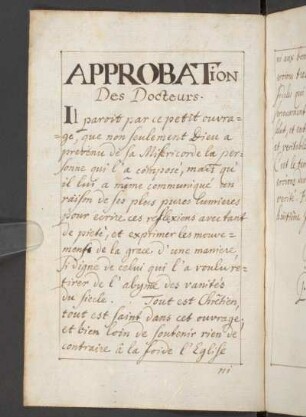 APPROBATion
Des Docteurs.
Il paroit par ce petit ouvra-
ge que non seulement Dieu a
prevenu de sa Misericorde la per-
sonne qui l'a composé, mais qu'
il luis a mesme communiqué
raison de ses plus pures lumieres
pour écrire ces reflexions avec tant
de pieté, et exprimer les mouve-
ments de la grace d'une maniere,
si digne de celui qui l'a voulu re-
tirer de l'abyme des vanités
du siecle. Tout est Chrétien,
tout est saint dans cet ouvrage,
et bien loin de soutenir rien de
contraire à la foi de l'Eglise
ni